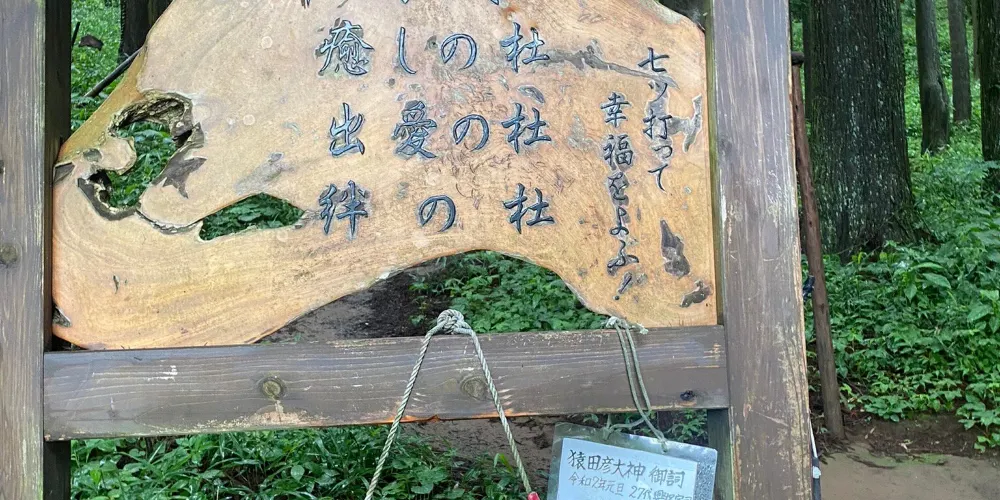 癒しの杜
出愛の杜
絆の杜
七ツ打って
幸福をよぶ!
猿田彦大神 御詞
令和2年元旦 27代